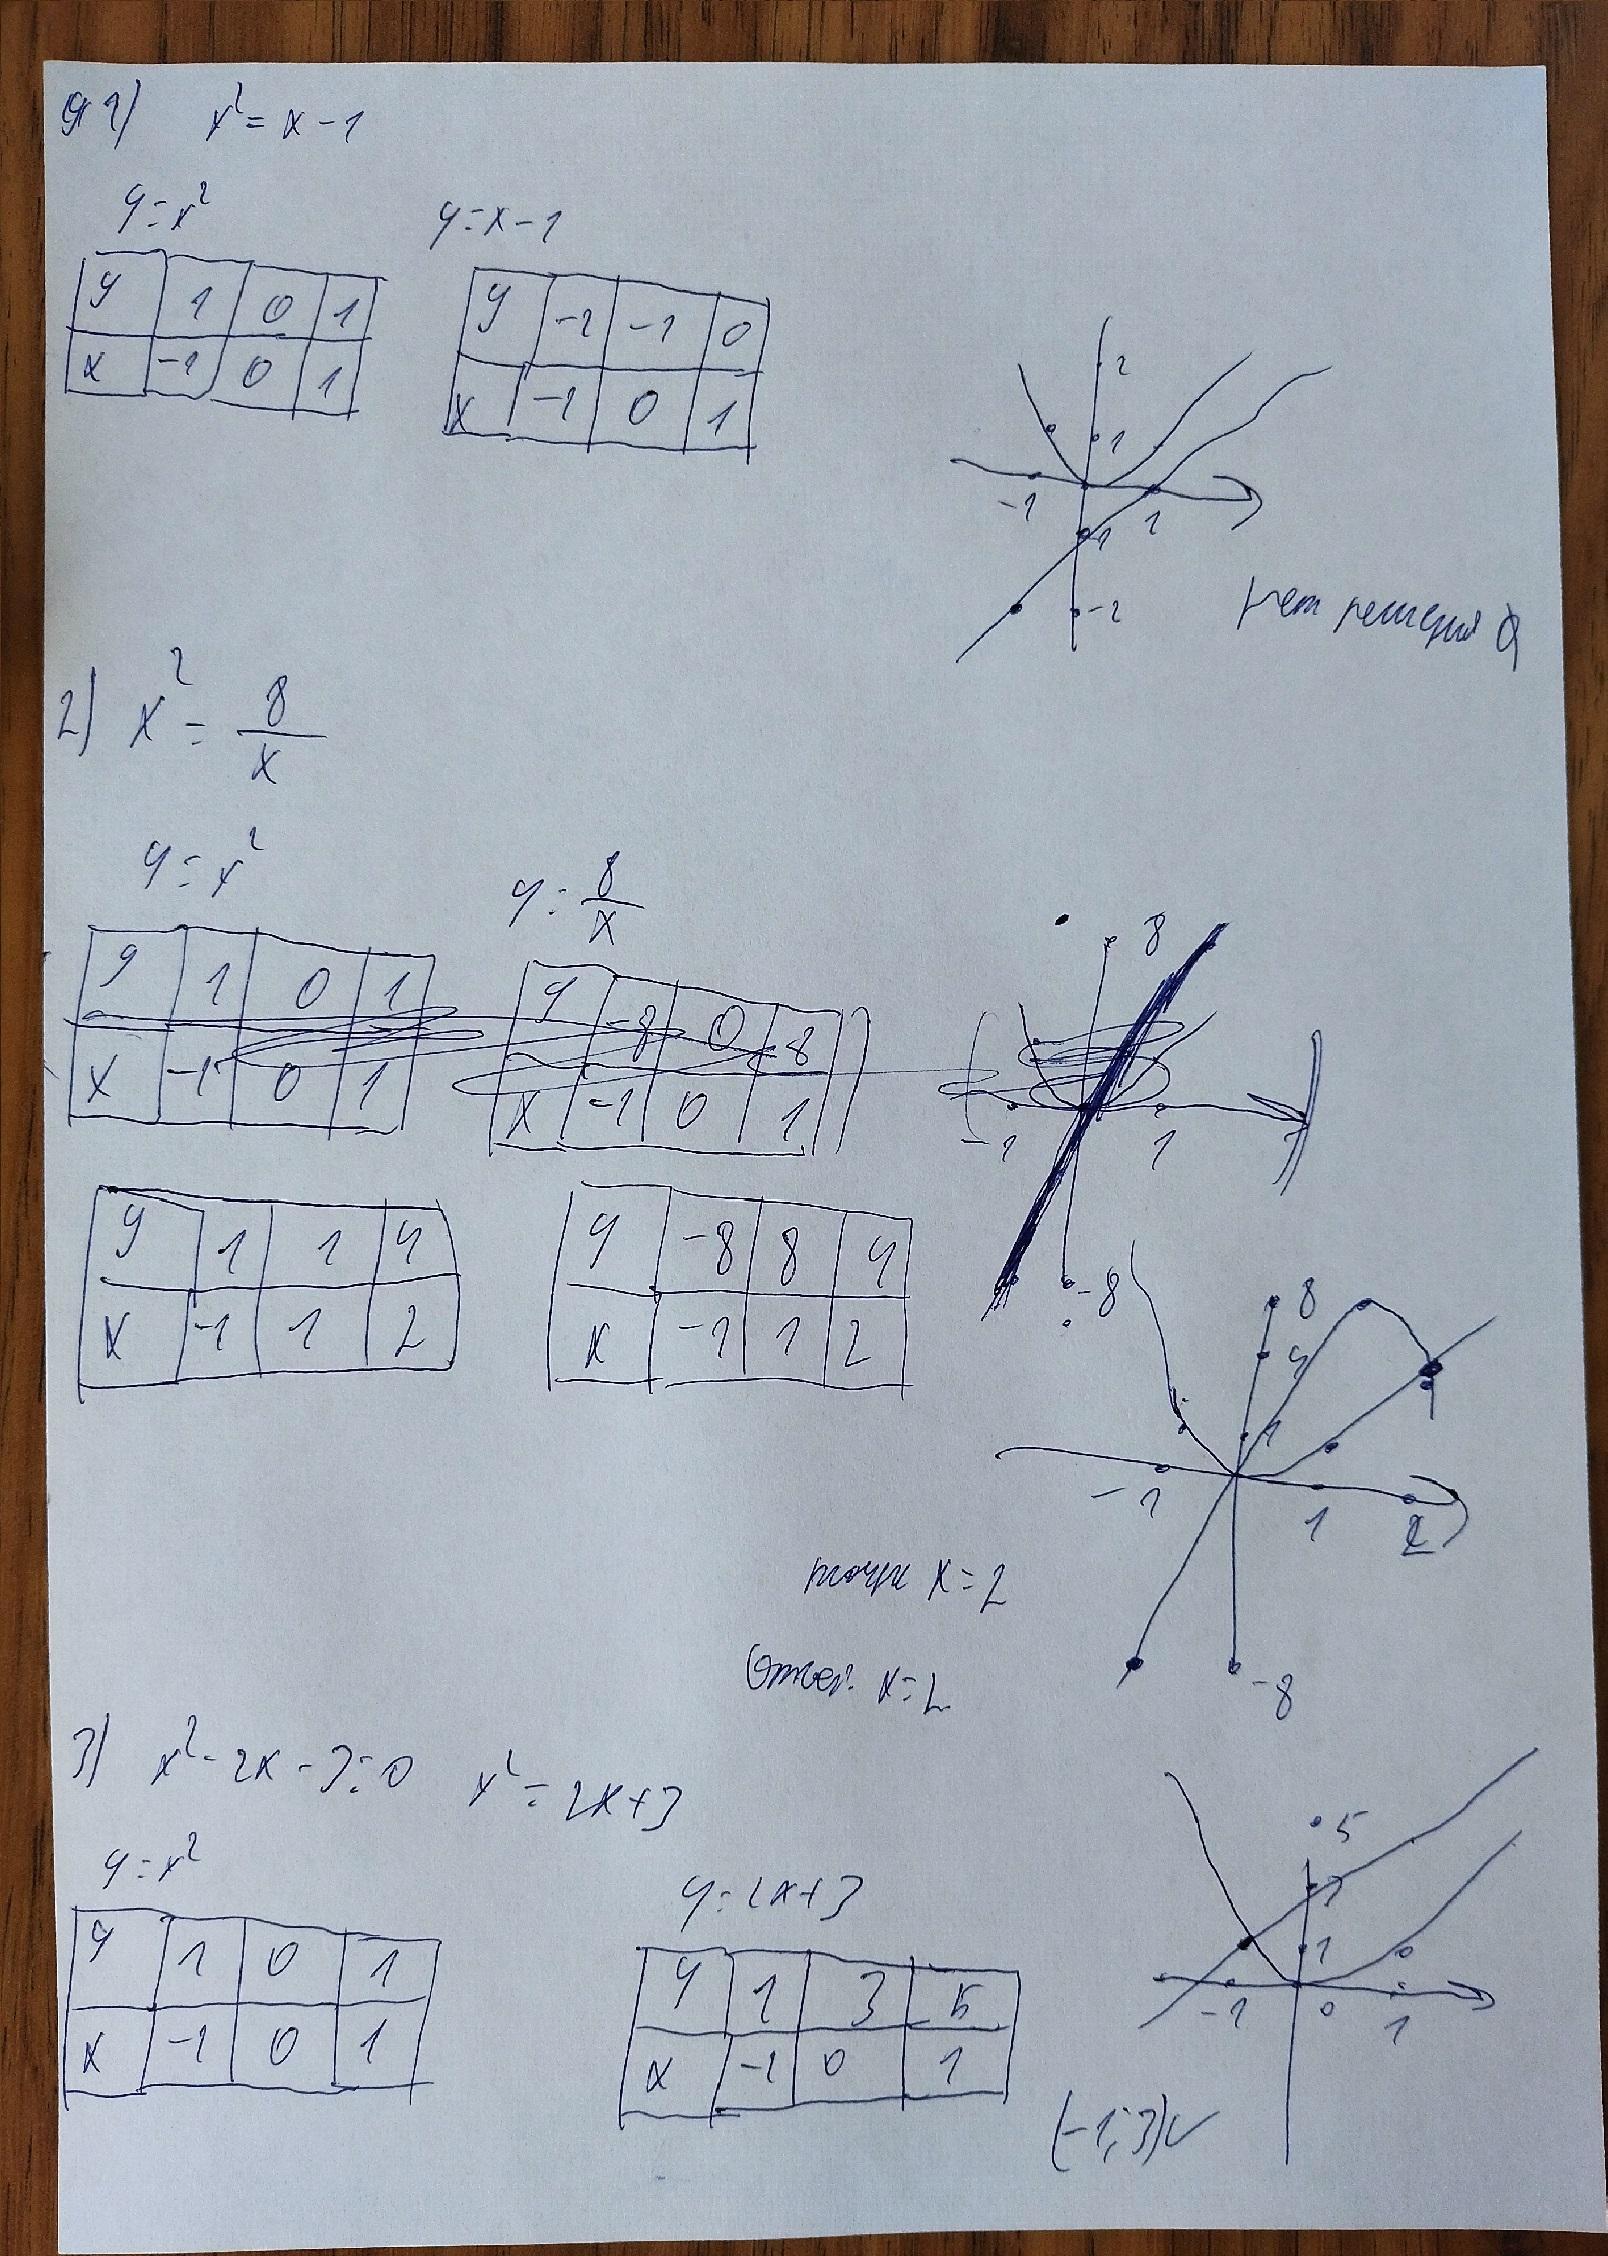 1) x² = x - 1
y = x² y = x - 1
y 1 0 1
x -1 0 1
y -2 -1 0
x -1 0 1
2
1
-1 1
-1
-2
нет решения ∅
2) x² = 8/x
y = x² y = 8/x
y 1 0 1
x -1 0 1
y -8 0 8
x -1 0 1
8
-1 1
-8
y 1 1 4
x -1 1 2
y -8 8 4
x -1 1 2
8
4
1
-1 1 2
-8
точки x = 2
Ответ. x = 2
3) x² - 2x - 3 = 0 x² = 2x + 3
y = x² y = 2x + 3
y 1 0 1
x -1 0 1
y 1 3 5
x -1 0 1
5
3
1
-1 0 1
(-1; 3)